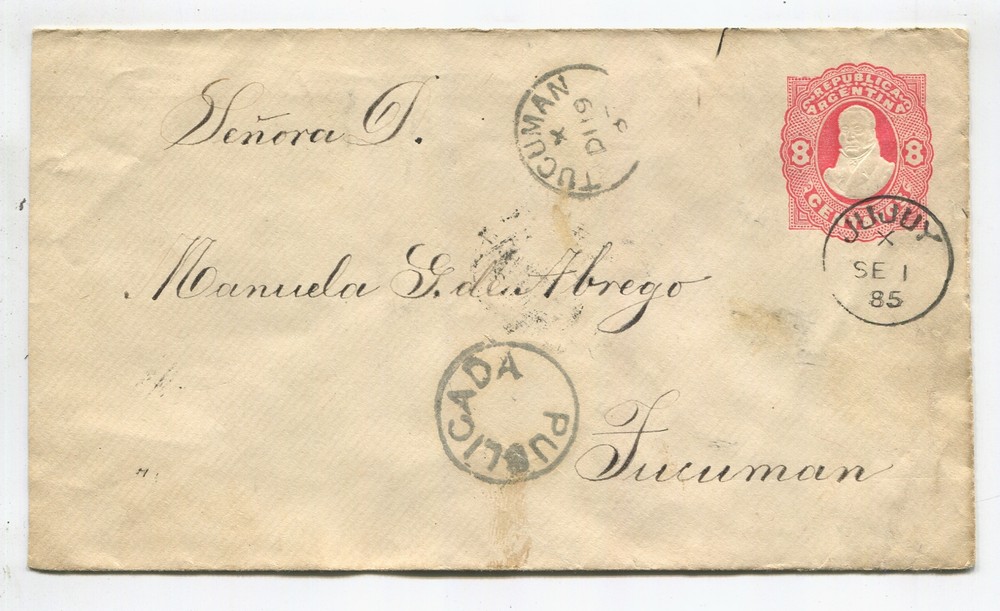 Señora D.
TUCUMAN
X
DI 19
REPUBLICA
ARGENTINA
8 8
JUJUY
X
SE 1
85
Manuela G. de Abrego
PUBLICADA
Tucuman